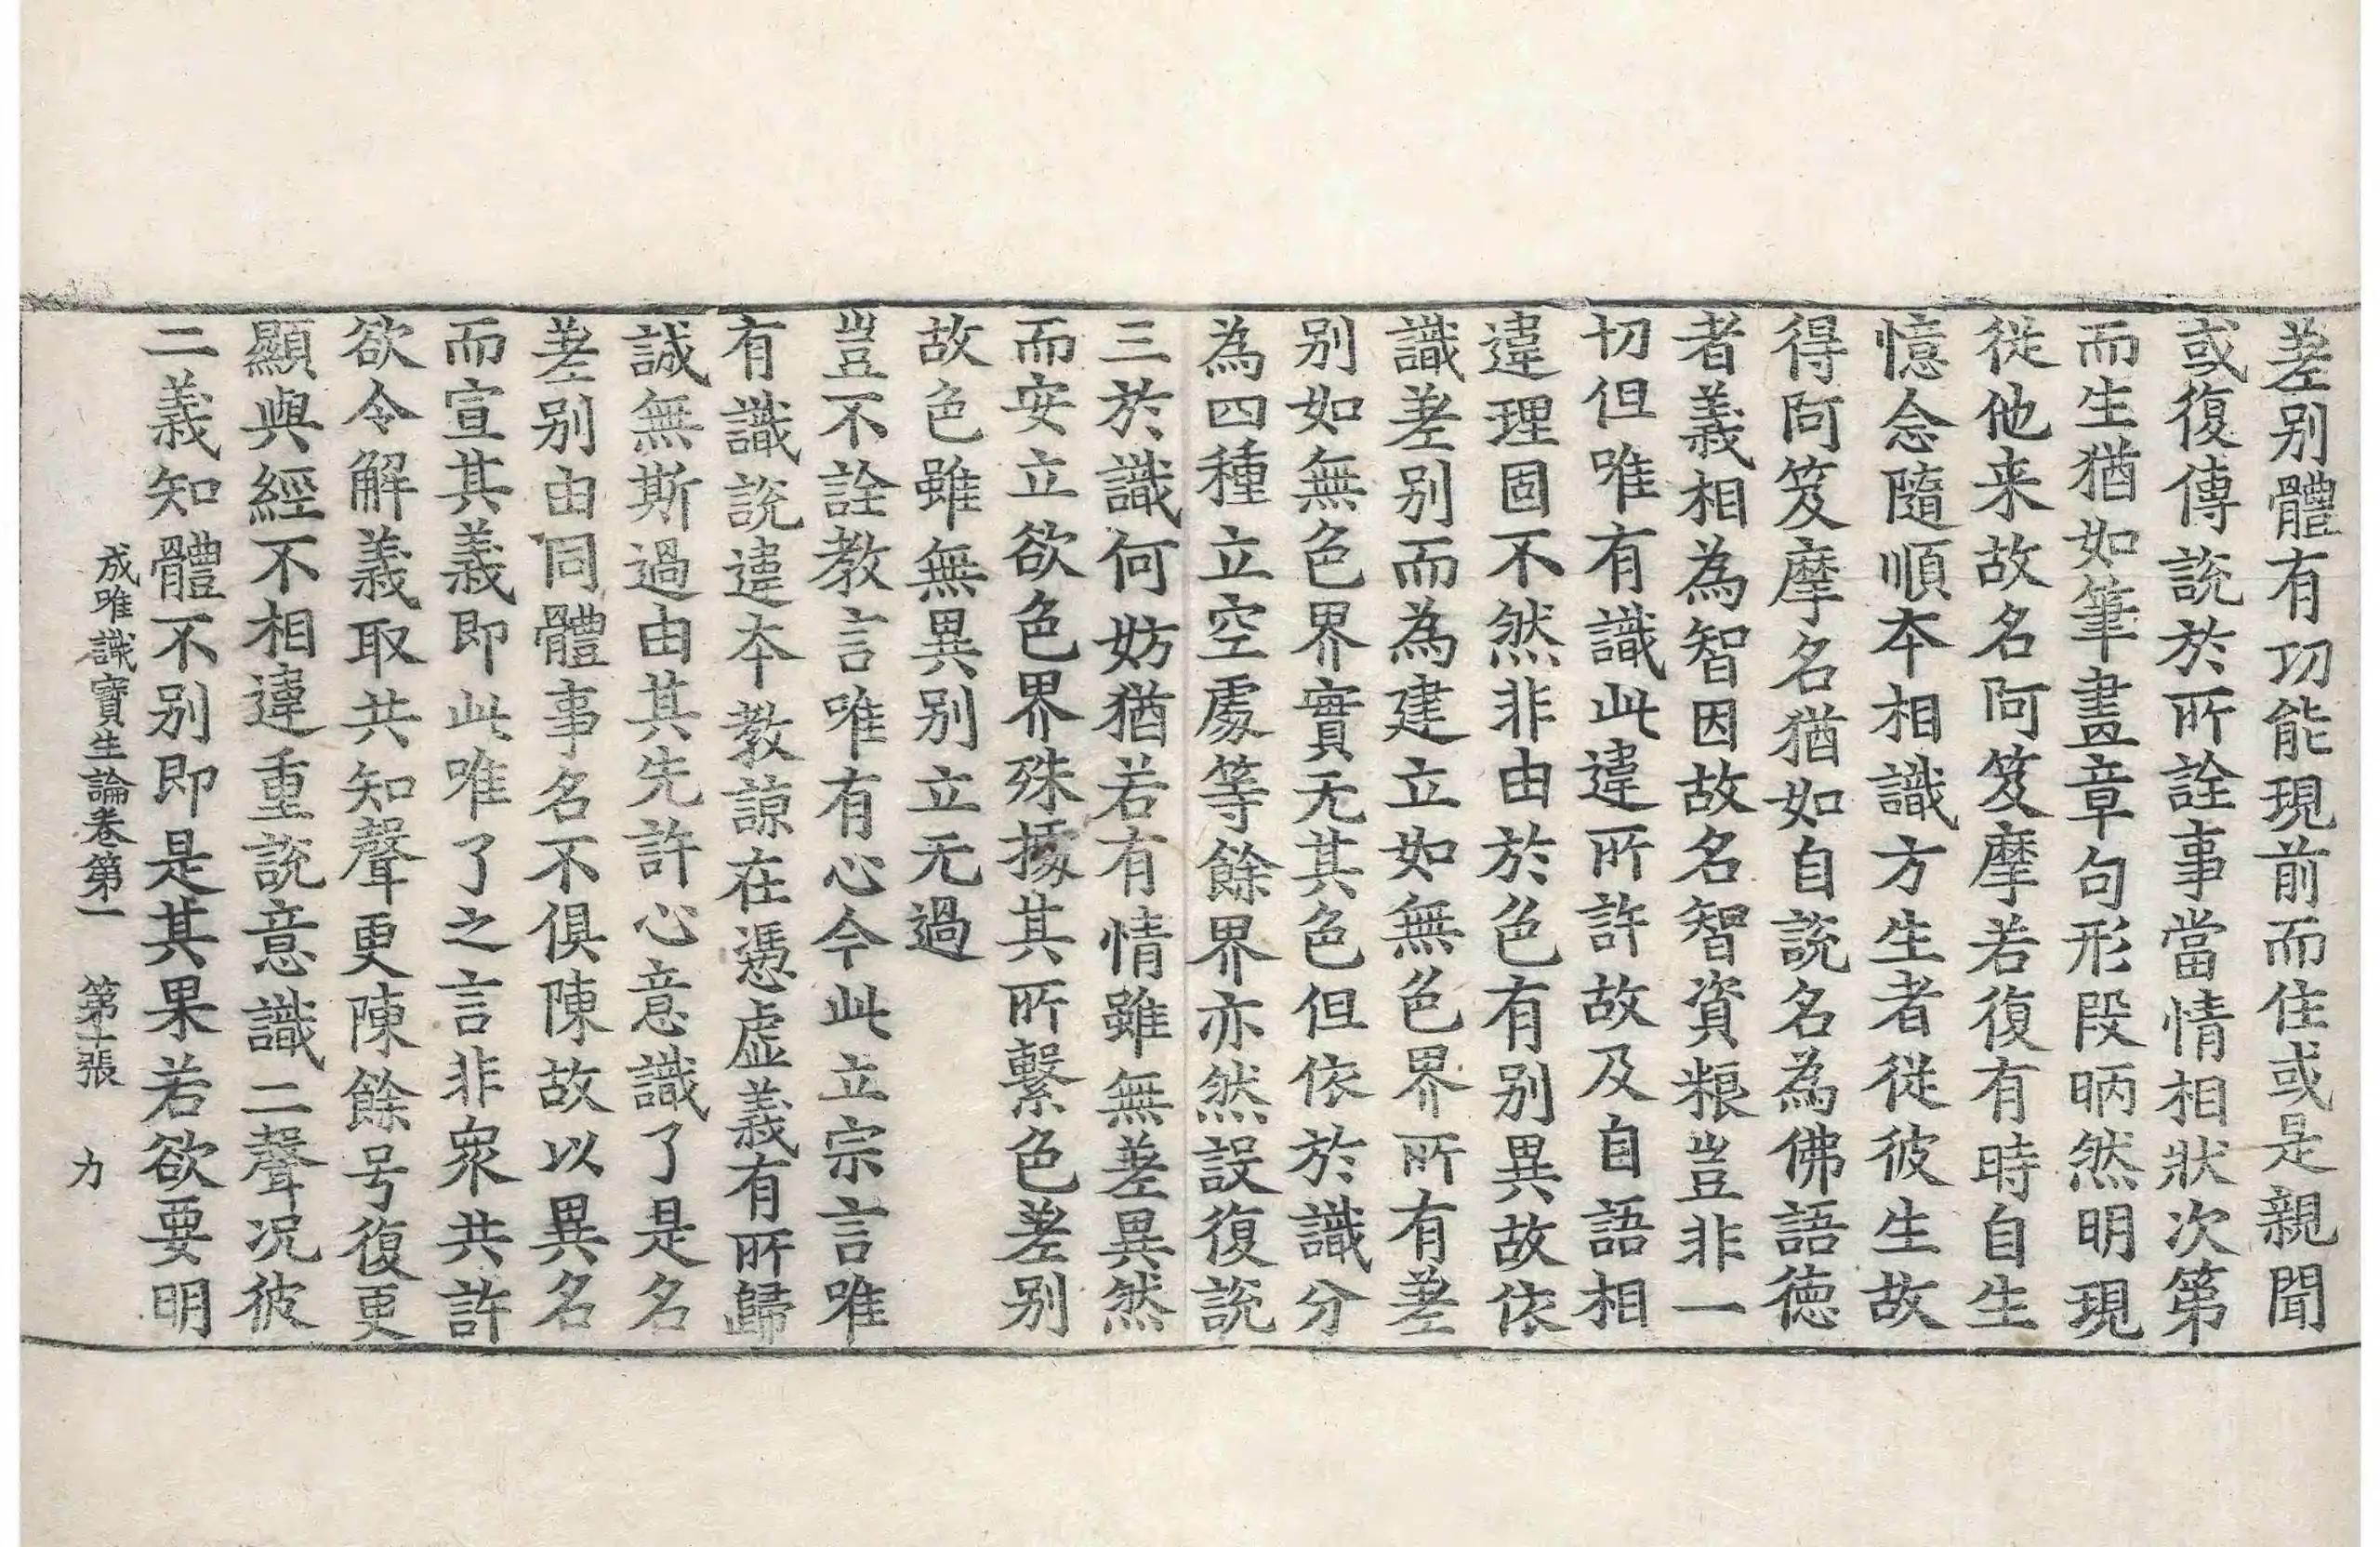 差別體有功能現前而住或是親聞
或復傳說於所詮事當情相狀次第
而生猶如筆畫章句形段昞然明現
從他来故名阿笈摩若復有時自生
憶念隨順本相識方生者從彼生故
得阿笈摩名猶如自說名為佛語德
者義相為智因故名智資粮豈非一
切但唯有識此違所許故及自語相
違理固不然非由於色有別異故依
識差別而為建立如無色界所有差
別如無色界實无其色但依於識分
為四種立空處等餘界亦然設復說
三於識何妨猶若有情雖無差異然
而安立欲色界殊據其所繫色差別
故色雖無異別立无過
豈不詮教言唯有心今此立宗言唯
有識說違本教諒在憑虛義有所歸
誠無斯過由其先許心意識了是名
差別由同體事名不俱陳故以異名
而宣其義即此唯了之言非衆共許
欲令解義取共知聲更陳餘号復更
顯與經不相違重說意識二聲况彼
二義知體不別即是其果若欲要明
成唯識寶生論卷第一 第十張 力